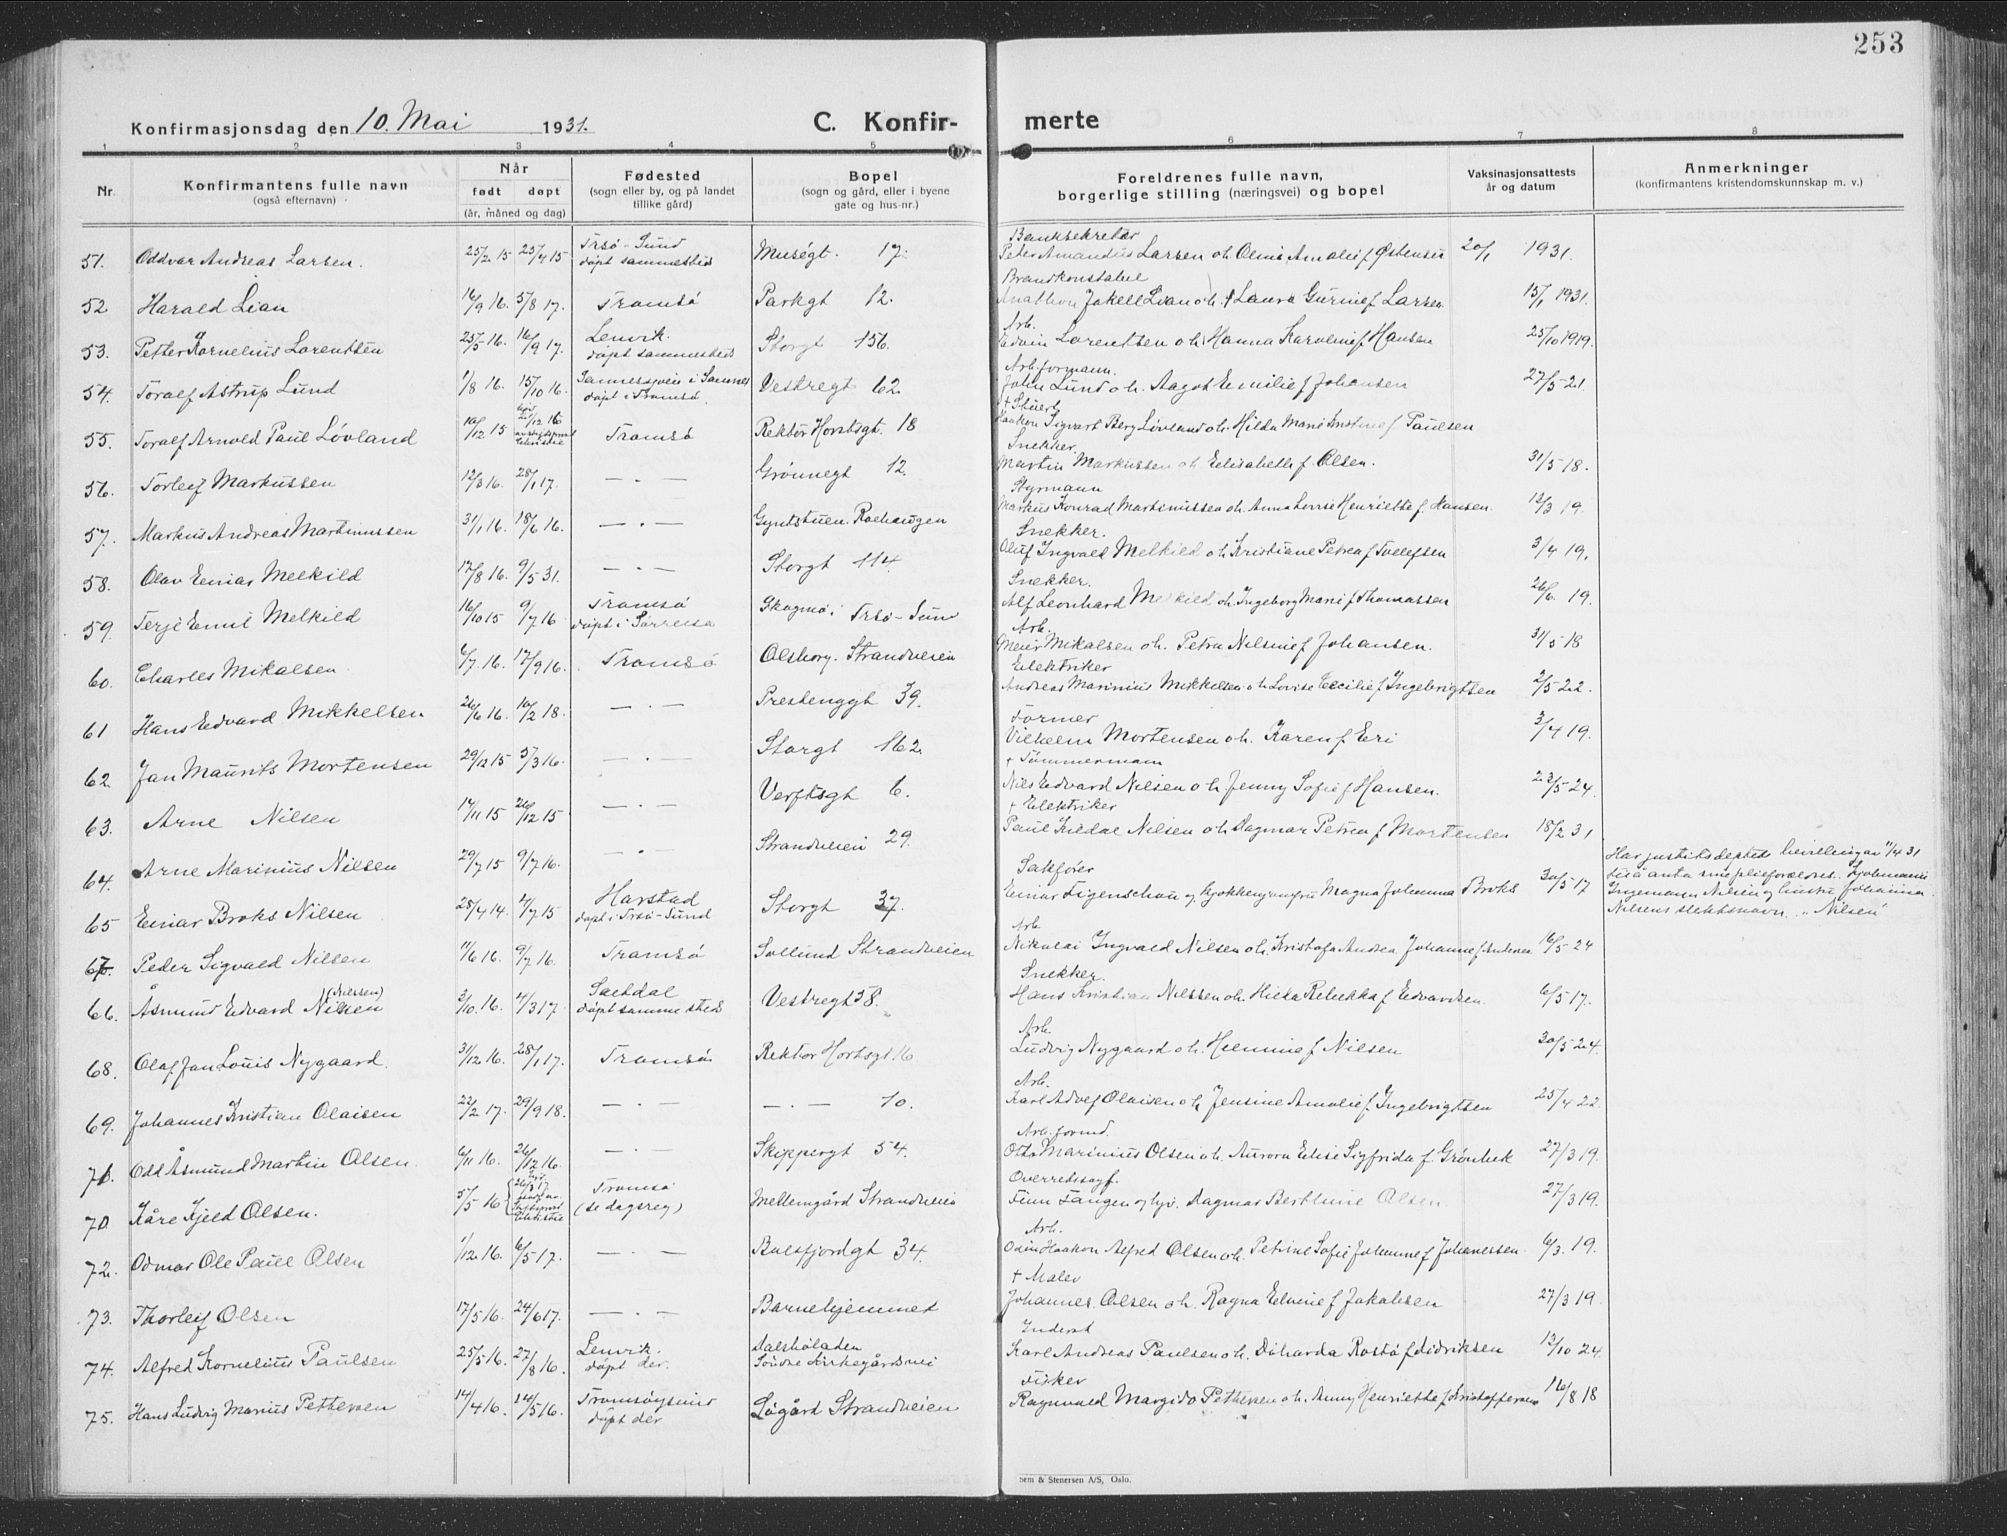 253
Konfirmasjonsdag den 10. Mai 1931.
C. Konfir-
merte
1 2 3 4 5 6 7 8
Nr.
Konfirmantens fulle navn
(også efternavn)
Når
født døpt
(år, måned og dag)
Fødested
(sogn eller by, og på landet
tillike gård)
Bopel
(sogn og gård, eller i byene
gate og hus-nr.)
Foreldrenes fulle navn,
borgerlige stilling (næringsvei) og bopel
Vaksinasjonsattests
år og datum
Anmerkninger
(konfirmantens kristendomskunnskap m. v.)
51. Oddvar Andreas Larsen. 25/2 15 25/4 15 Trsø-Sund døpt sammesteds Muségt. 17. Banksekretær
Peter Amandus Larsen o h. Amalie f Østensen 20/1 1931.
52 Harald Lian 16/9 16. 5/8 17. Tromsø Parkgt 12. Brandkonstabel
Lian o h. Laura f Larsen 15/1 1931.
53. Petter Kornelius Lorentsen 25/5 16. 16/9 17. Lenvik. døpt sammesteds Storgt 156. Arb.
Edvin Lorentsen o h. Hanna Karoline f Hansen 25/10 1919.
54. Toralf Astrup Lund 1/8 16. 15/10 16. døpt i Tromsø. Vestregt 62. Arb.formann.
John Lund o h. Aagot Emilie f Johansen 27/5 - 21.
55. Toralf Arnold Paul Løvland 10/12 15 12 16 Tromsø Rektor Horstsgt. 18 + Stuert
Haakon Sigvart Berg Løvland o h. Hilda Marie f Paulsen
56. Torleif Markussen 12/3 16. 28/1 17. — . — Grønnegt 12. Snekker.
Martin Markussen o h Elisabeth f. Olsen. 31/5 18.
57. Markus Andreas Martinussen 31/1 16. 18/6 16. — . — Gyntstuen. Styrmann
Markus Konrad Martinussen o h. Anna Lovise Henriette f. Hansen. 12/3 19.
58. Olav Einar Melkild 17/8 16. 9/5 31. — . — Storgt 114. Snekker.
Oluf Ingvald Melkild o h. Kristiane Petrea f 3/4 19.
59. Terje Emil Melkild 16/10 15 9/7 16 Tromsø døpt i Sørreisa Skogmo i Trsø-Sund Snekker.
Alf Leonhard Melkild o h. Ingeborg Marie f Thomassen 26/6. 19.
60. Charles Mikalsen 6/7. 16. 17/9 16. Tromsø Olsborg. Strandveien Arb.
Meier Mikalsen o h. Petra Nilsine f Johansen. 31/5 18
61 Hans Edvard Mikkelsen 26/6 16. 10/2 18. — . — Prestenggt 39. Elektriker
Andreas Marinius Mikkelsen o h Lovise Cecilie f Ingebrigtsen 2/5 22.
62. Jan Maurits Mortensen 29/12 15 5/3 16. — . — Storgt 162. Former
Vilhelm Mortensen o h. Karen f Eri 3/4 19.
63. Arne Nilsen 14/11 15 26/12 15 — . — Verftsgt 6. + Tømmermann
Nils Edvard Nilsen o h Jenny Sofie f Hansen. 23/5 - 24.
64. Arne Marinius Nilsen 29/7 15 9/7 16. — . — Strandveien 29. + Elektriker
Paul Nilsen o h Dagmar Petrea f Mortensen 18/2 31
65 Einar Broks Nilsen 25/4 14. 4/7 15 Harstad døpt i Trsø-Sund Storgt 37. Sakfører
Einar Figenschau og kjøkkenjomfru Magna Johanna Broks 30/5 17
Har justitsdeptets bevilling av 11/4 31
til å anta sine pleieforeldres,
Ingemann Nilsen og hustru Johanna
Nilsens slektsnavn „Nilsen"
67. Peder Sigvald Nilsen 11/6 16. 9/7 16. Tromsø Sollund Strandveien Arb.
Nikolai Ingvald Nilsen o h. Kristofa Andrea Johanne f. 16/5 - 24
66. Åsmund Edvard Nilsen (Nilssen) 3/10. 16. 4/3 17 Saltdal døpt sammesteds Vestregt 58. Snekker.
Hans Kristian Nilssen o h. Rebekka f Edvardsen. 6/5 17.
68. Olaf Jan Louis Nygaard. 31/12 16. 28/1 17. Tromsø Rektor Horstsgt. 16. Arb.
Ludvig Nygaard o h. f Nilsen 30/5 - 24.
69. Johannes Kristian Olaisen 22/2 17. 29/9 18. — . — — . — 10. Arb.
Karl Olaisen o h Jensine Amalie f. Ingebrigtsen 25/4 22.
71. Odd Åsmund Martin Olsen. 6/11 16. 26/12 16. — . — Skippergt 54. Arb. formd.
Otto Marinius Olsen o h. Aurora Elise Sigfrida f. Grønbek 27/3 19.
70. Kåre Kjeld Olsen. 5/5 16 Tromsø (se dagsreg) Mellemgård Strandveien Overrettssagf.
Finn Fangen og Dagmar Olsen. 27/3 19.
72. Odmar Ole Paul Olsen 1/12. 16. 6/5 17. — . — Balsfjordgt 34. Arb.
Odin Haakon Alfred Olsen o h. Petrine Sofie Johanne f Johanessen. 6/3. 19.
73. Thorleif Olsen 17/5 16. 24/6 17. — . — Barnehjemmet + Maler
Johannes Olsen o h. Ragna Elvine f Jakobsen 27/3 19.
74. Alfred Kornelius Paulsen 25/5 16. 27/8 16. Lenvik. døpt der. Søndre Kirkegårdsvei Inderst
Karl Andreas Paulsen o h. f Didriksen 13/10 24
75. Hans Ludvig Marius Pettersen 14/4 16. 14/5 16. Tromsøysund døpt der Løgård Strandveien Fisker
Ragnvald Margido Pettersen o h. Anny Henriette f Kristoffersen 16/8 18
Sem & Stenersen A/S, Oslo.